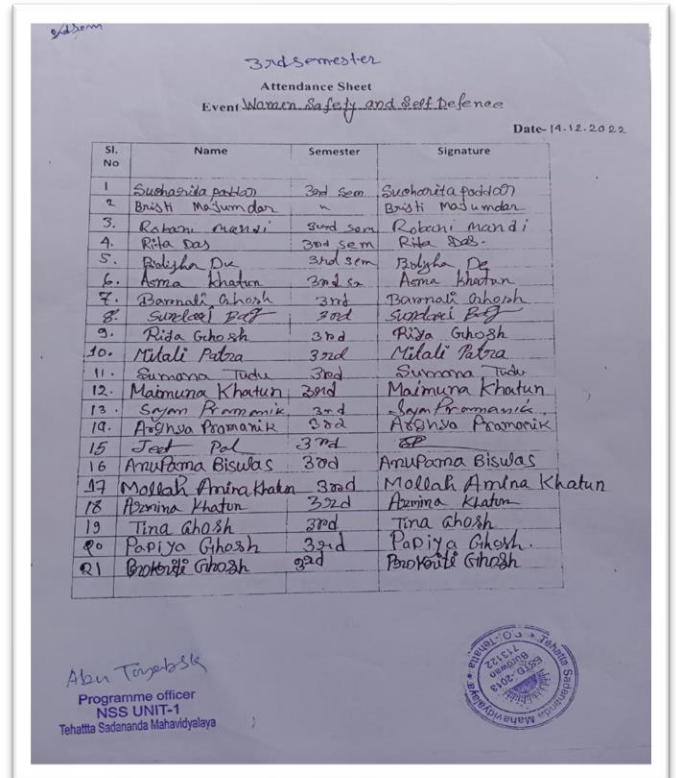 3rdsem
3rd semester
Attendance Sheet
Event Women Safety and Self Defence
Date- 14.12.2022
Sl. No Name Semester Signature
1 Sucharita poddar 3rd Sem Sucharita poddar
2 Bristi Majumdar " Bristi Majumdar
3. Robani mandi 3rd sem Robani mandi
4. Rita Das 3rd sem Rita Das.
5. 3rd sem
6. Asma Khatun 3rd Asma Khatun
7. Barnali Ghosh 3rd Barnali Ghosh
8. 3rd
9. Riya Ghosh 3rd Riya Ghosh
10. Mitali Patra 3rd Mitali Patra
11. Sumana Tudu 3rd Sumana Tudu
12. Maimuna Khatun 3rd Maimuna Khatun
13. Sayan Pramanik 3rd Sayan Pramanik
14. Arghya Pramanik 3rd Arghya Pramanik
15 Jeet Pal 3rd
16 Anupama Biswas 3rd Anupama Biswas
17 Mollah Amina Khatun 3rd Mollah Amina Khatun
18 Azmina Khatun 3rd Azmina Khatun
19 Tina Ghosh 3rd Tina Ghosh
20 Papiya Ghosh 3rd Papiya Ghosh.
21 Ghosh 3rd Ghosh
Abu
Programme officer
NSS UNIT-1
Tehattta Sadananda Mahavidyalaya
Tehatta Sadananda Mahavidyalaya * P.O.-Tehatta *
ESTD-2013
Burdwan
713122